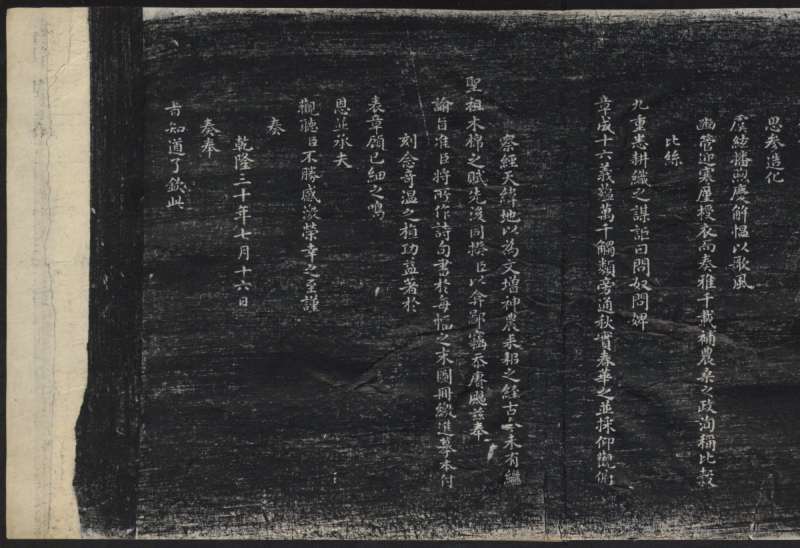 思參造化
虞絃播煦慶解慍以歌風
豳管迎寒歷授衣而奏雅千載補農桑之政洵稱比穀
比絲
九重思耕織之謀詎曰問奴問婢
章成十六義蘊萬千觸類旁通秋實春華之並採仰觀俯
察經天緯地以為文增神農耒耜之經古今未有繼
聖祖木棉之賦先後同揆臣以弇鄙竊忝賡颺茲奉
諭旨准臣將所作詩句書於每幅之末圖冊繳進摹本付
刻念苛溫之楨功益著於
表章顧已細之鳴
恩並承天
觀聽臣不勝感激榮幸之至謹
奏
乾隆三十年七月十六日
奏奉
旨知道了欽此